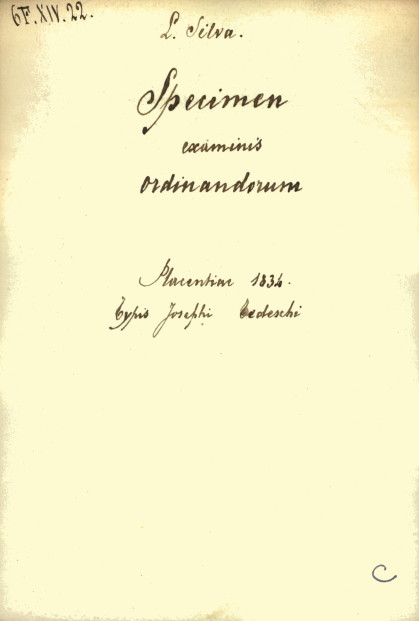 6F.XIV.22.
L. Silva.
Specimen
examinis
ordinandorum
Placentiae 1834.
Typis Josephi Tedeschi
C